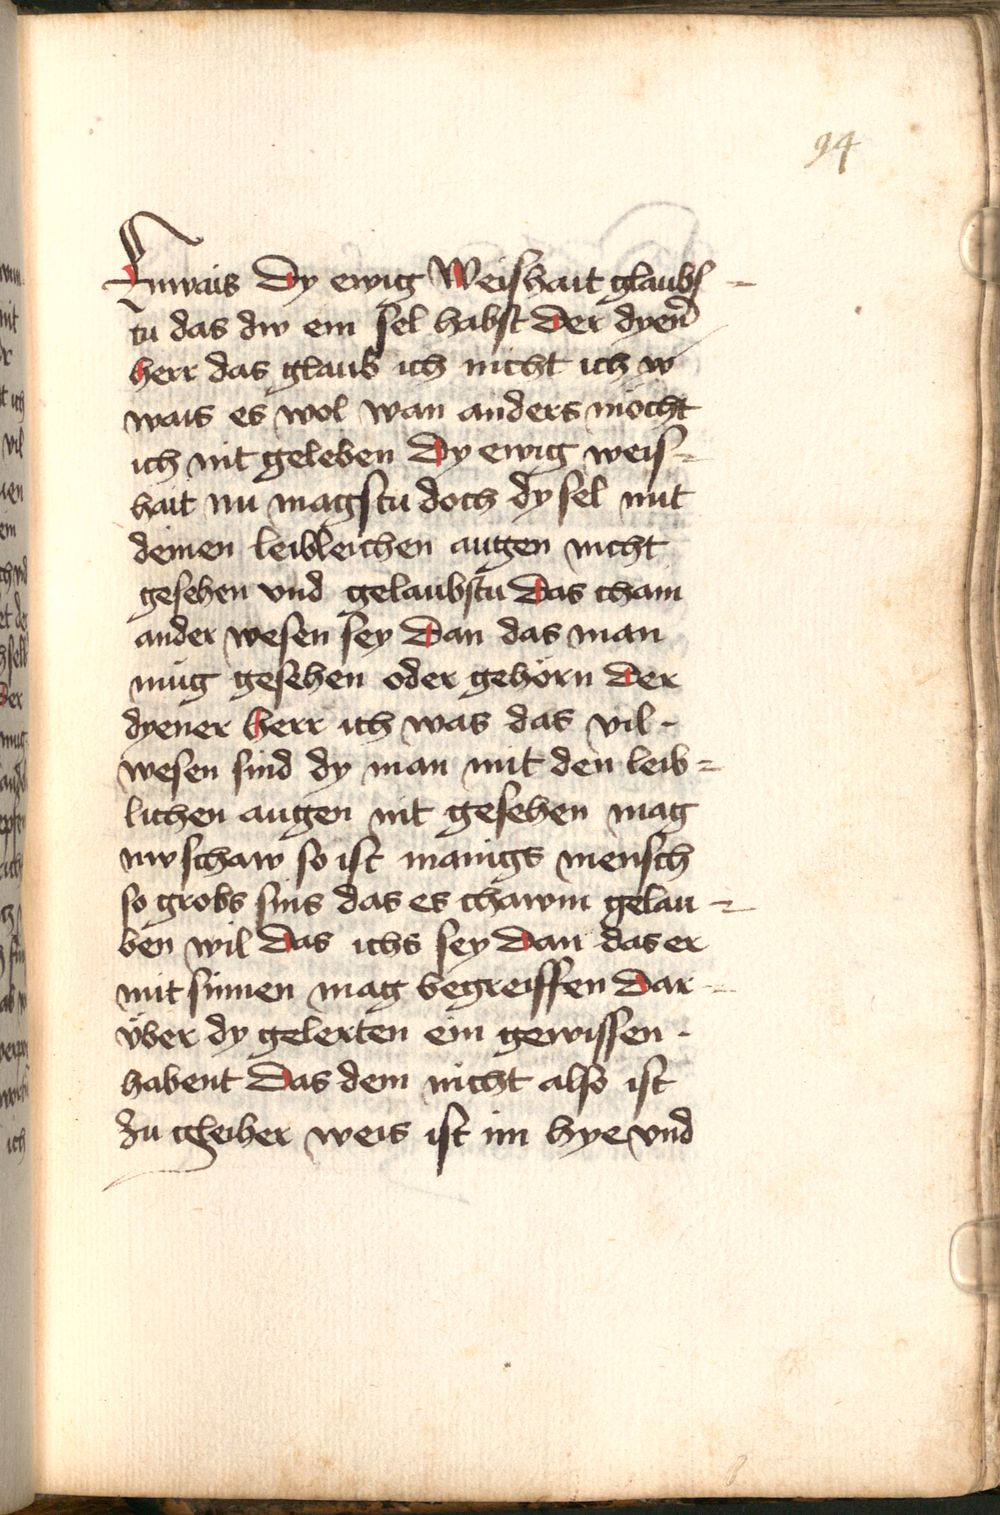 94
Enwais Dy ewig Weishait glaubs-
tu das dw ein sel habst Der dyen̄
herr das glaub ich nicht ich w
wais es wol wan anders möcht
ich nit geleben Dy ewig weis-
hait nu magstu doch dy sel mit
deinen leibleichen augen nicht
gesehen vnd gelaubstu Das chain
ander wesen sey Dan das man
müg gesehen oder gehörn Der
dyener herr ich was das vil-
wesen sind dy man mit den leib=
lichen augen nit gesehen mag
nw schaw so ist manigs mensch
so grobs sins das es chawm gelau-
ben wil Das ichs sey Dan das er
mit sinnen mag begreiffen Dar-
vͤber dy gelerten ein gewissen-
habent Das dem nicht also ist
Zu gleiher weis ist im hye vnd